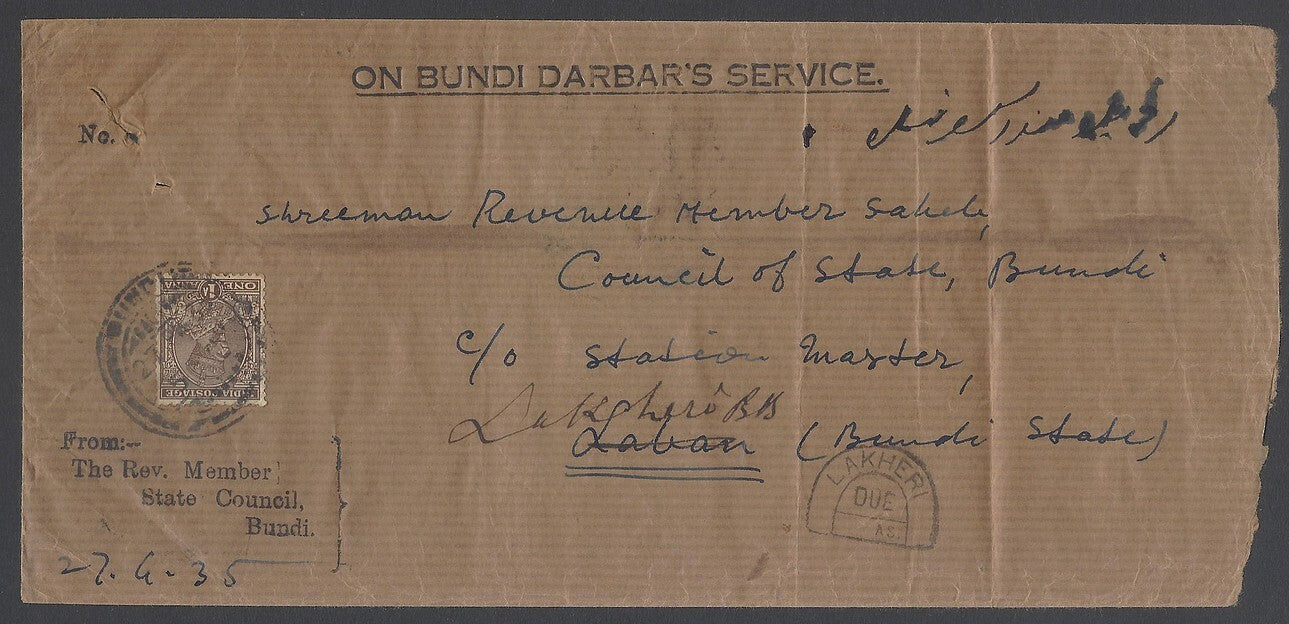 ON BUNDI DARBAR'S SERVICE.
No.
Shreeman Revenue Member Saheb,
Council of State, Bundi
c/o Station Master,
Lakheri BB
Laban (Bundi State)
ONE 1A ANNA
INDIA POSTAGE
BUNDI
LAKHERI
DUE
AS.
From:-
The Rev. Member
State Council,
Bundi.
27.4.35